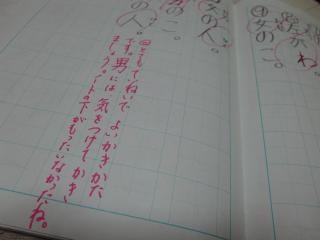 ④女のこ。
がわ。
女の人。
男のこ。
の人。
とてもていねいで よいかきかた
です。男には 気をつけて かき
ましょう。ノートの下がもったいなかったね。